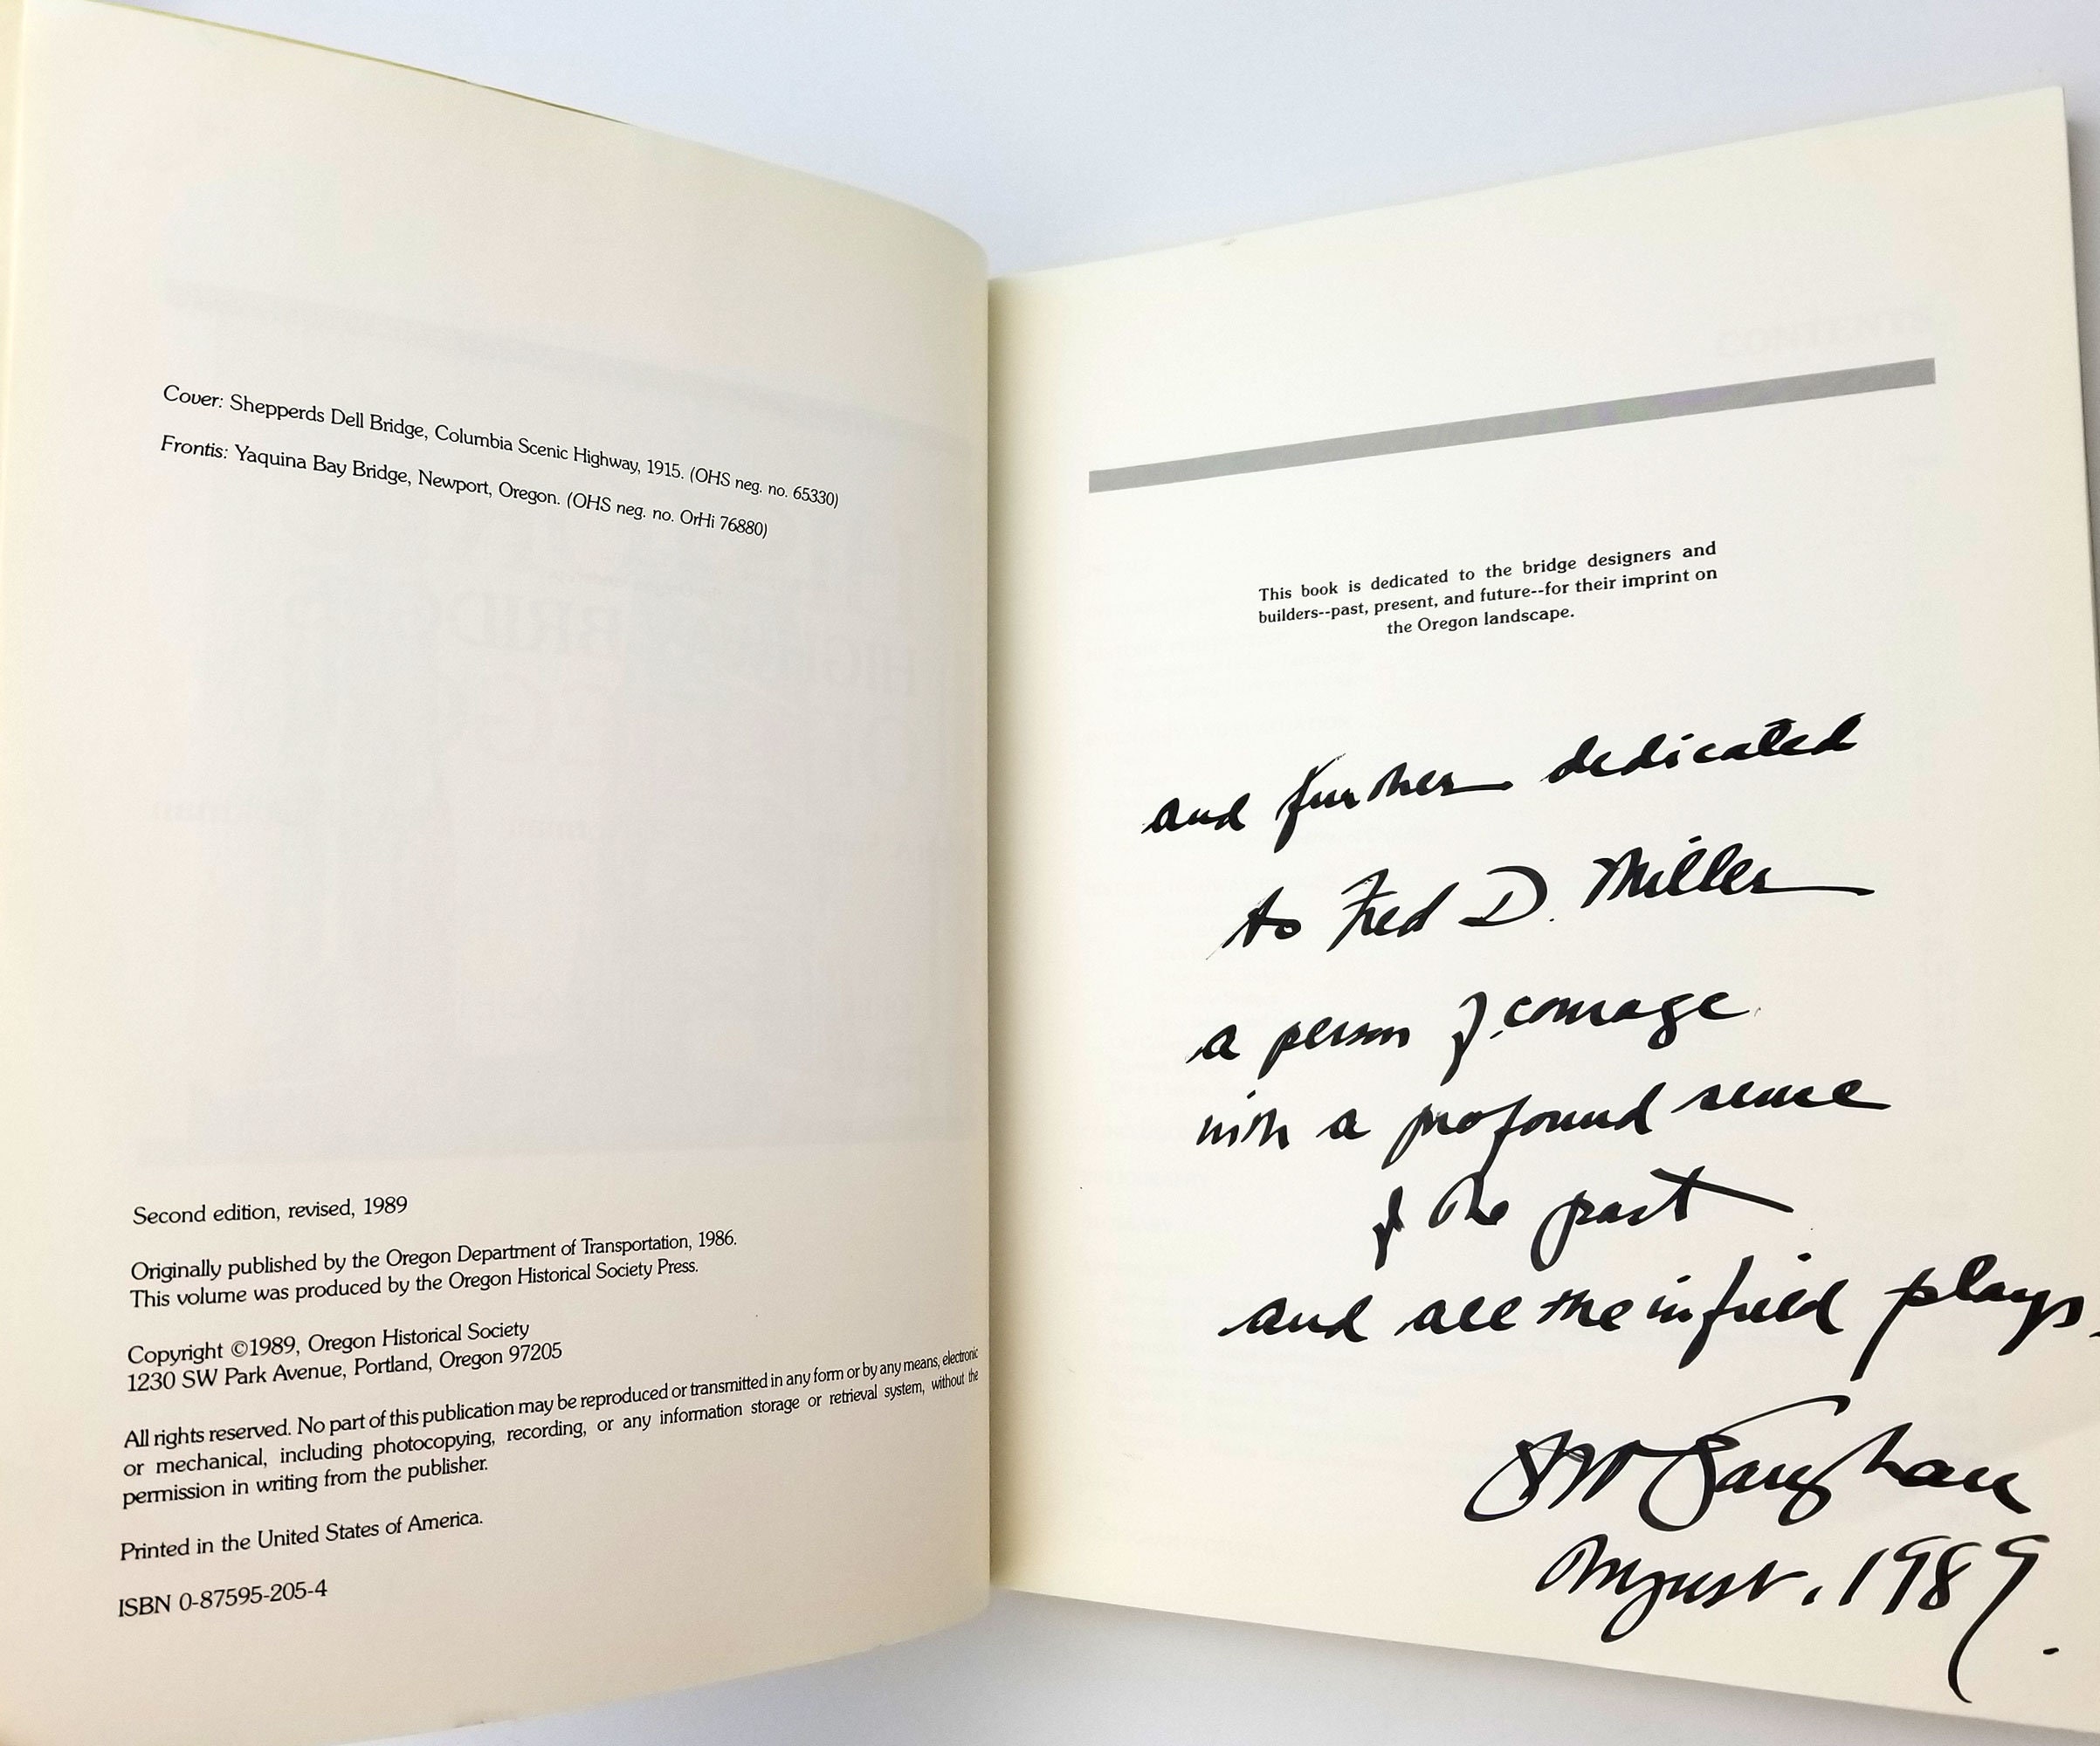 Cover: Shepperds Dell Bridge, Columbia Scenic Highway, 1915. (OHS neg. no. 65330)
Frontis: Yaquina Bay Bridge, Newport, Oregon. (OHS neg. no. OrHi 76880)
Second edition, revised, 1989
Originally published by the Oregon Department of Transportation, 1986.
This volume was produced by the Oregon Historical Society Press.
Copyright ©1989, Oregon Historical Society
1230 SW Park Avenue, Portland, Oregon 97205
All rights reserved. No part of this publication may be reproduced or transmitted in any form or by any means, electronic
or mechanical, including photocopying, recording, or any information storage or retrieval system, without the
permission in writing from the publisher.
Printed in the United States of America.
ISBN 0-87595-205-4
This book is dedicated to the bridge designers and
builders--past, present, and future--for their imprint on
the Oregon landscape.
and further dedicated
to Fred D. Miller
a person of courage
with a profound sense
of the past
and all the infield plays.
Vaughan
August, 1989.